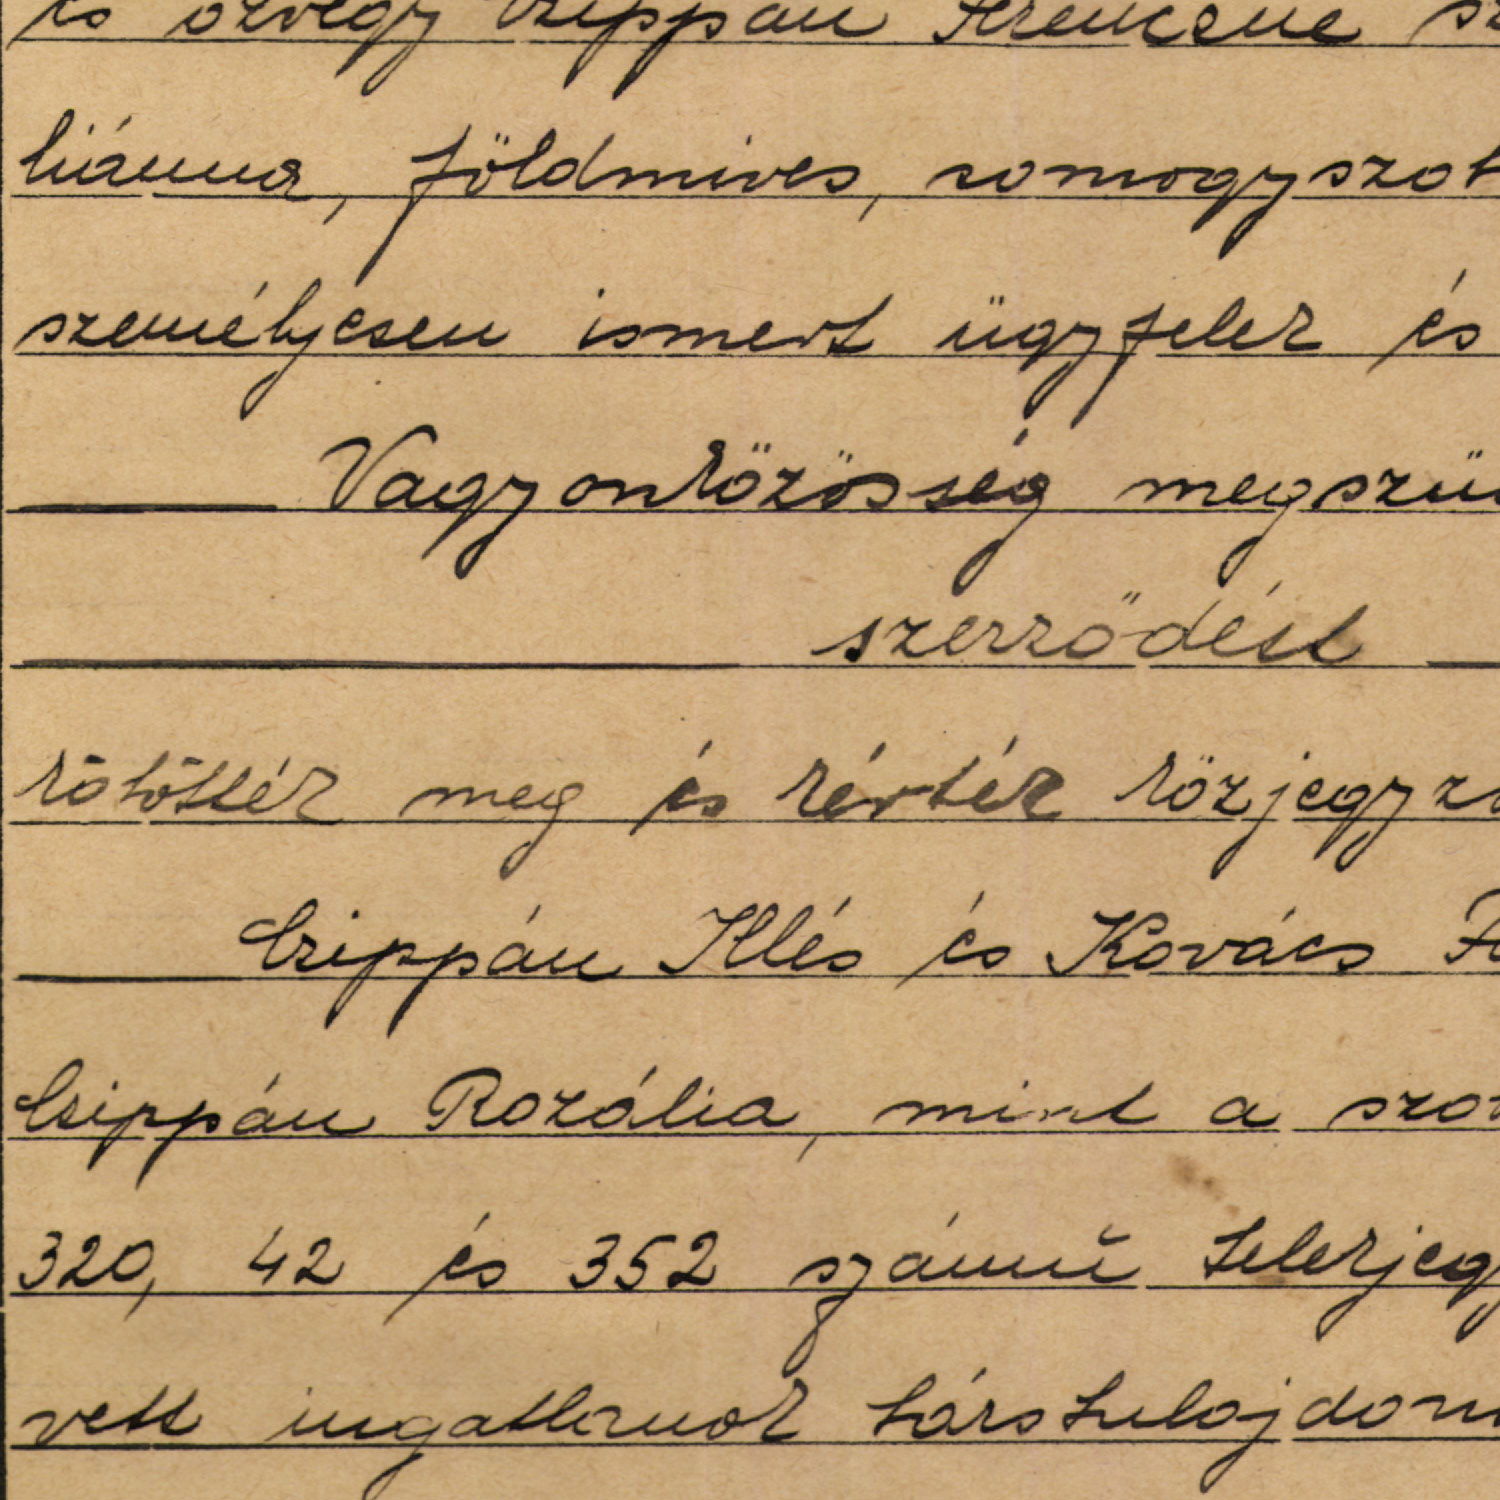 és özvegy Czippán Ferencné sz
liánna, földmives, somogyszob
személyesen ismert ügyfelek és
Vagyonközösség megszün
szerződést
kötöttek meg és kérték közjegyző
Czippán Illés és Kovács F
Czippán Rozália, mint a szo
320, 42 és 352 számú telekjegy
vett ingatlanok társtulajdon